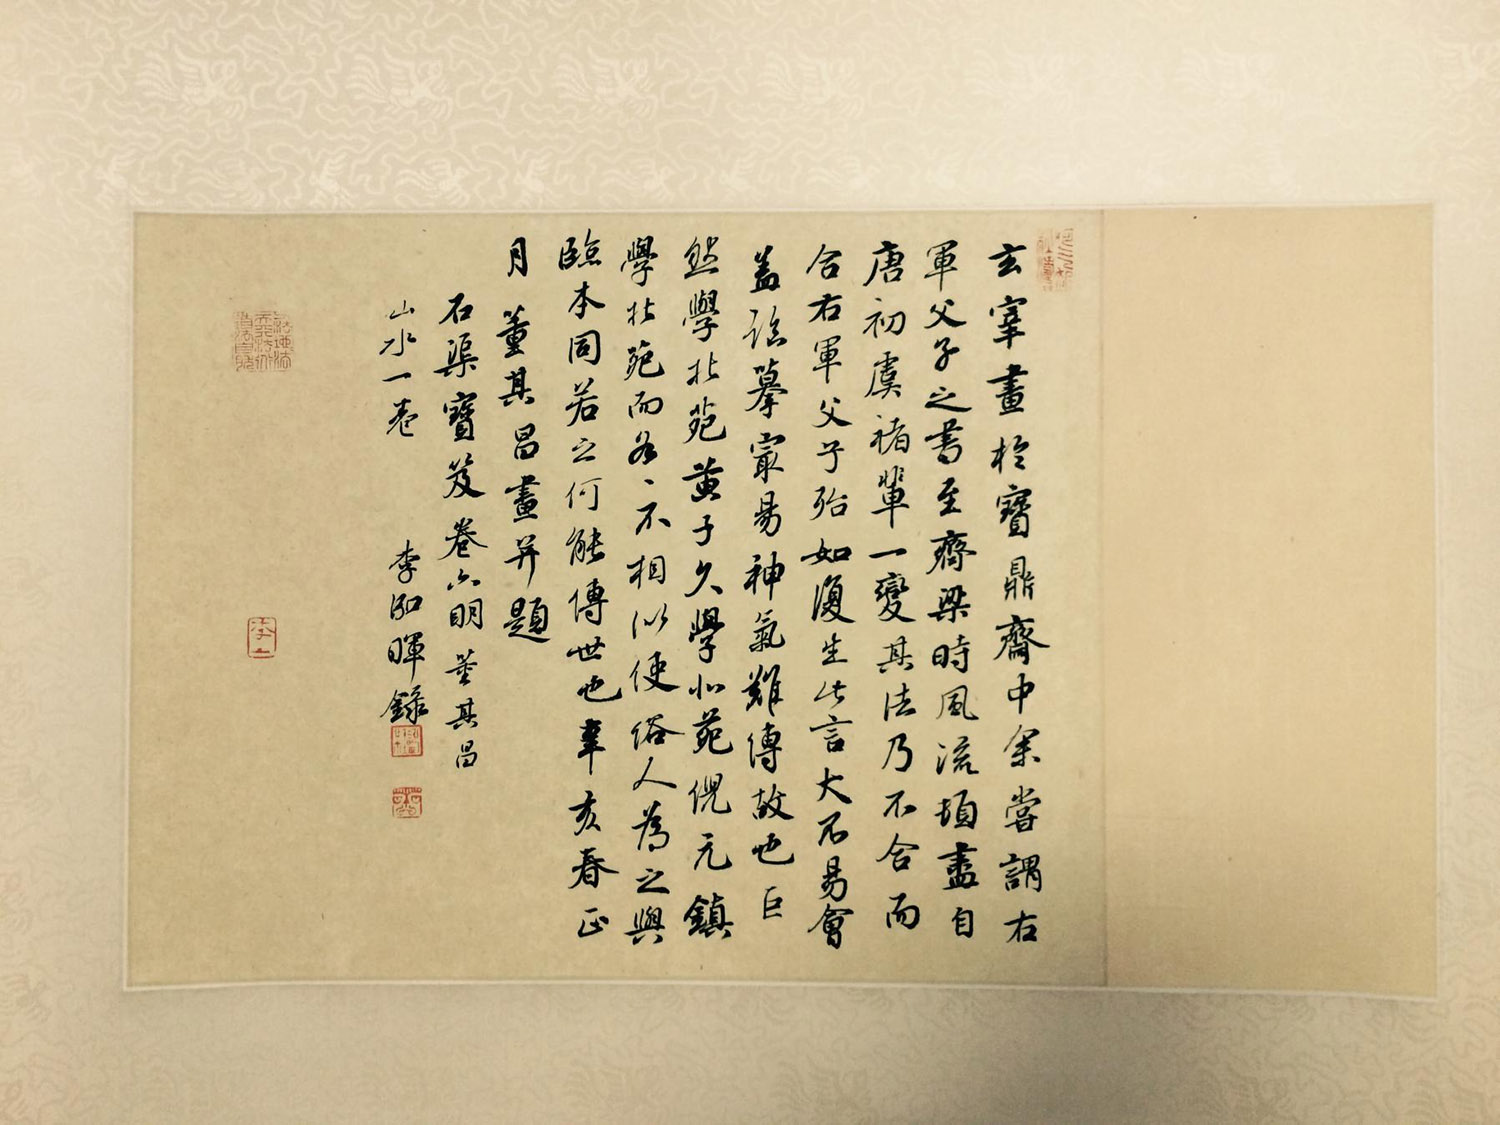 玄宰畫於寶鼎齋中余嘗謂右
軍父子之書至齊梁時風流頓盡自
唐初虞褚輩一變其法乃不合而
合右軍父子殆如復生此言大不易會
蓋臨摹寔易神氣難傳故也巨
然學北苑黃子久學北苑倪元鎮
學北苑而各〻不相似使俗人為之與
臨本同若之何能傳世也辜亥春正
月 董其昌畫并題
石渠寶笈卷六明 董其昌
山水一卷 李泓暉錄